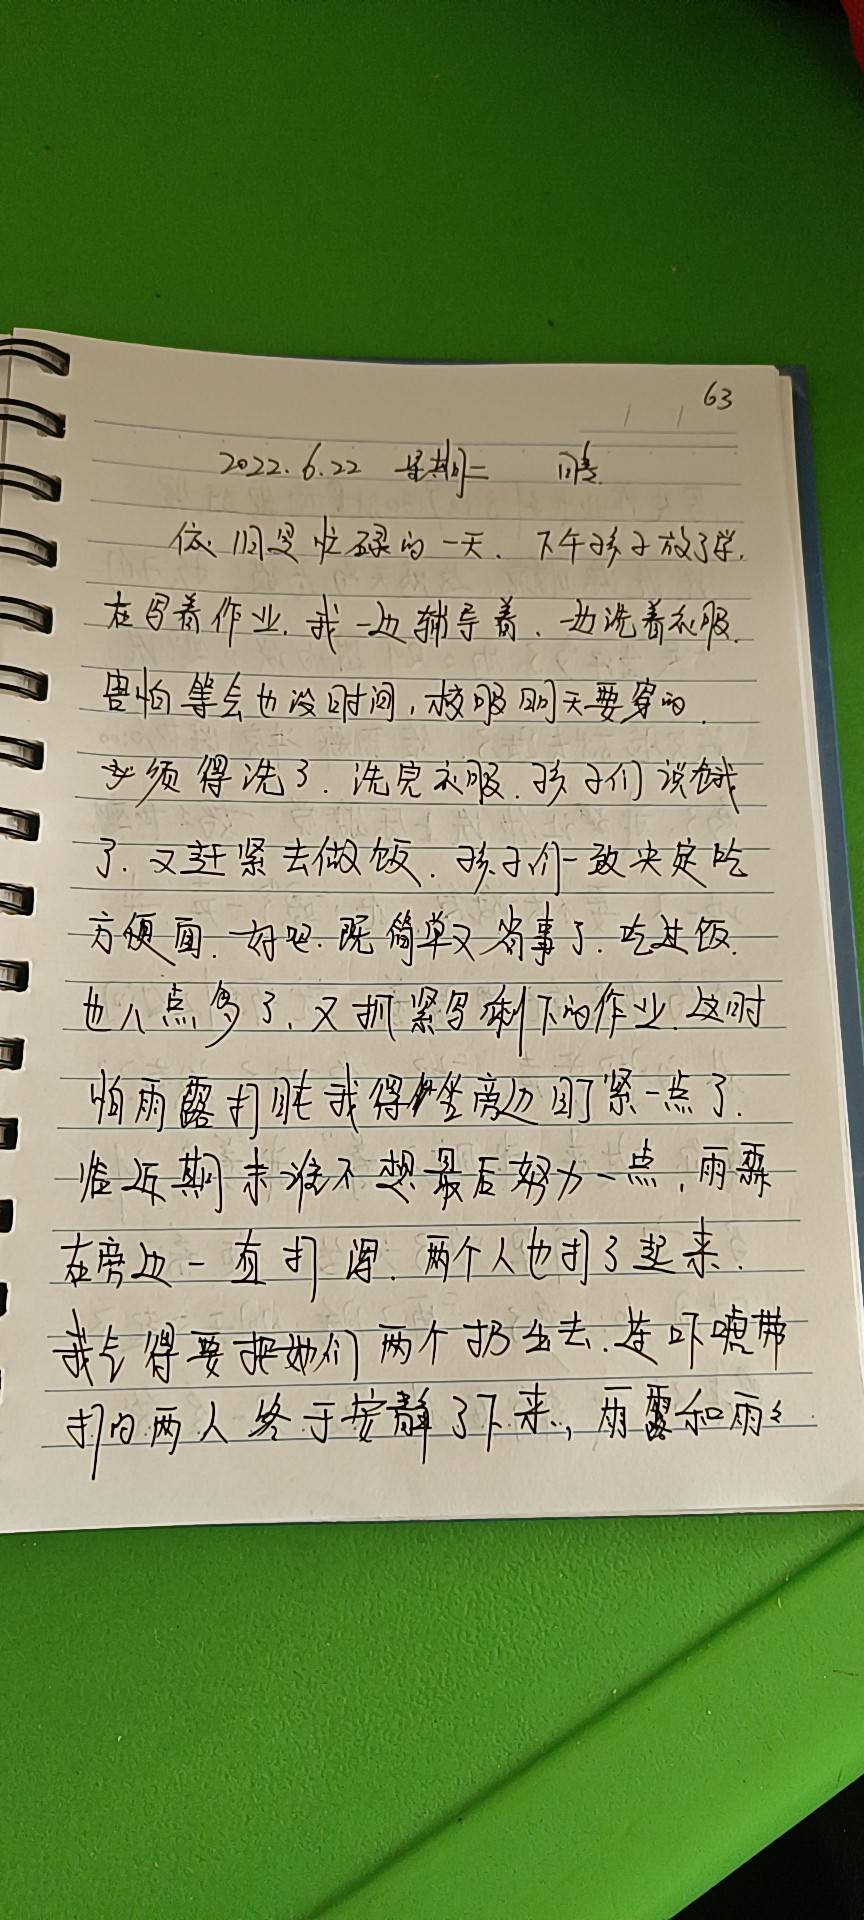 63
2022.6.22 星期二 晴
依旧是忙碌的一天.下午孩子放了学,
在写着作业.我一边辅导着、一边洗着衣服.
害怕等会也没时间,校服明天要穿的.
必须得洗了.洗完衣服.孩子们说饿
了.又赶紧去做饭.孩子们一致决定吃
方便面.好吧.既简单又省事了.吃过饭.
也八点多了,又抓紧写剩下的作业.这时
怕雨露打盹我得坐旁边盯紧一点了.
临近期末谁不想最后努力一点,雨霖
在旁边一直打.两个人也打了起来.
我气得要把她们两个扔出去.连吓唬带
打的两人终于安静了下来.,雨露和雨